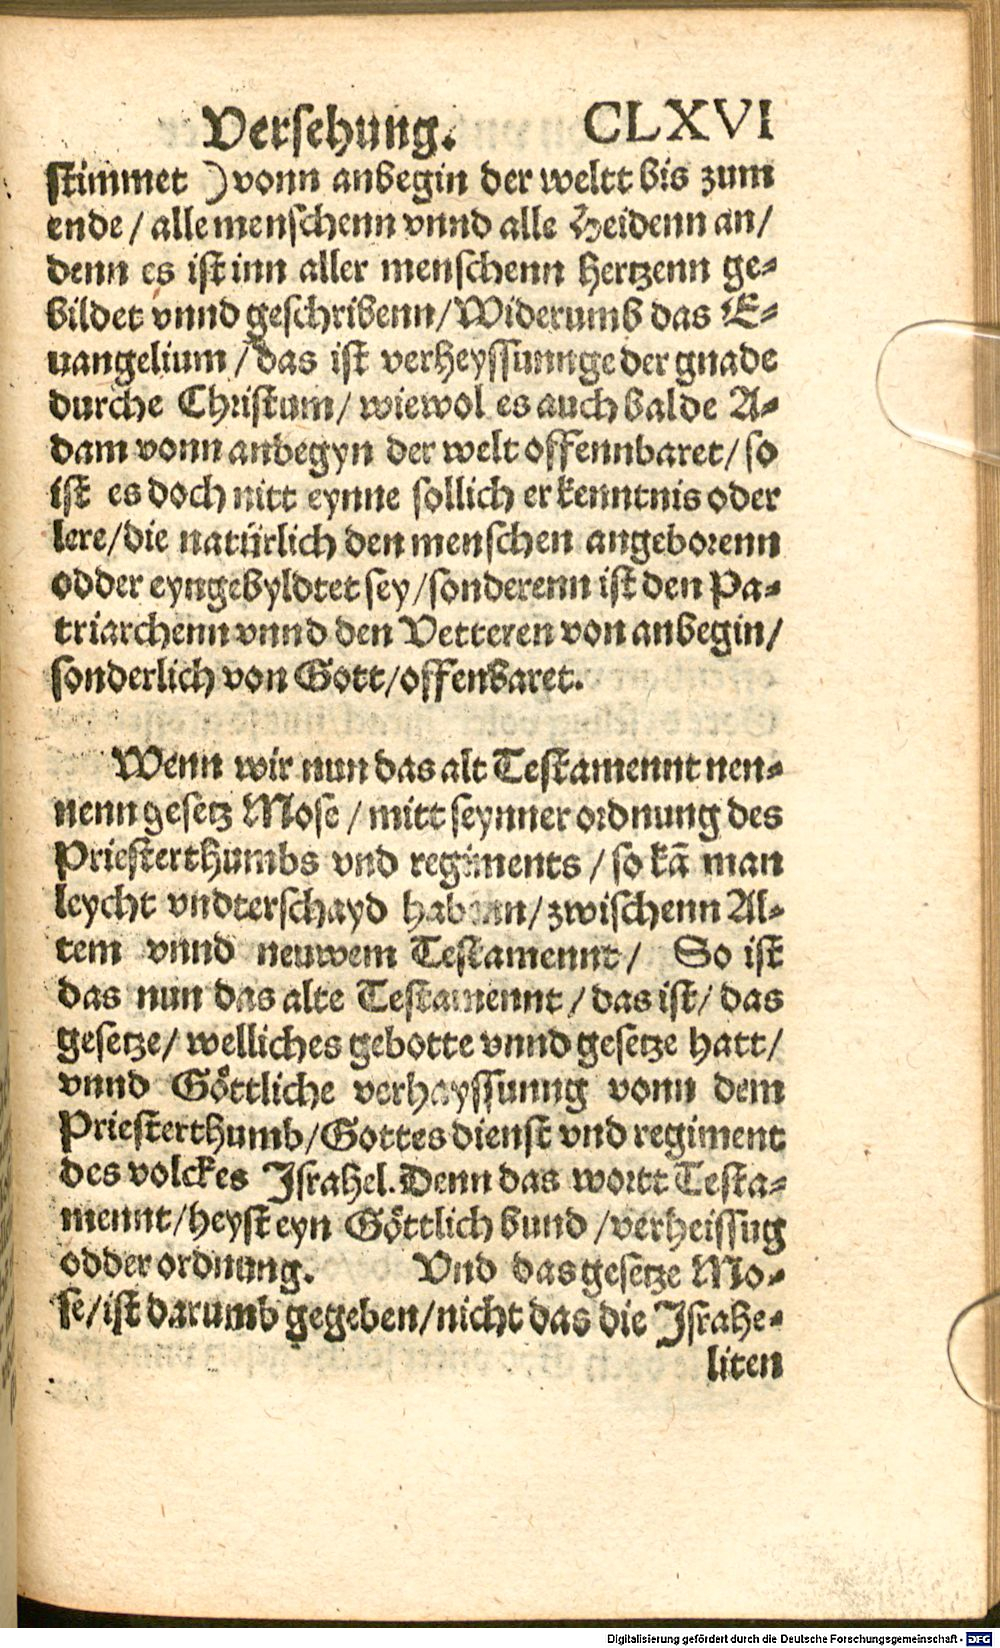 Versehung. CLXVI
stimmet ) vonn anbegin der weltt bis zum
ende / alle menschenn vnnd alle Heidenn an /
denn es ist inn aller menschenn hertzenn ge-
bildet vnnd geschribenn / Widerumb das E-
uangelium / das ist verheyssunnge der gnade
durche Christum / wiewol es auch balde A-
dam vonn anbegyn der welt offennbaret / so
ist es doch nitt eynne sollich erkenntnis oder
lere / die natürlich den menschen angeborenn
odder eyngebyldtet sey / sonderenn ist den Pa-
triarchenn vnnd den Vetteren von anbegin /
sonderlich von Gott / offenbaret.
Wenn wir nun das alt Testamennt nen-
nenn gesetz Mose / mitt seynner ordnung des
Priesterthumbs vnd regiments / so kā man
leycht vndterschayd habenn / zwischenn Al-
tem vnnd neuwem Testamennt / So ist
das nun das alte Testamennt / das ist / das
gesetze / welliches gebotte vnnd gesetze hatt /
vnnd Göttliche verhayssunng vonn dem
Priesterthumb / Gottes dienst vnd regiment
des volckes Israhel. Denn das wortt Testa-
mennt / heyst eyn Göttlich bund / verheissug
odder ordnung. Vnd das gesetze Mo-
se / ist darumb gegeben / nicht das die Israhe-
liten
Digitalisierung gefördert durch die Deutsche Forschungsgemeinschaft - DFG